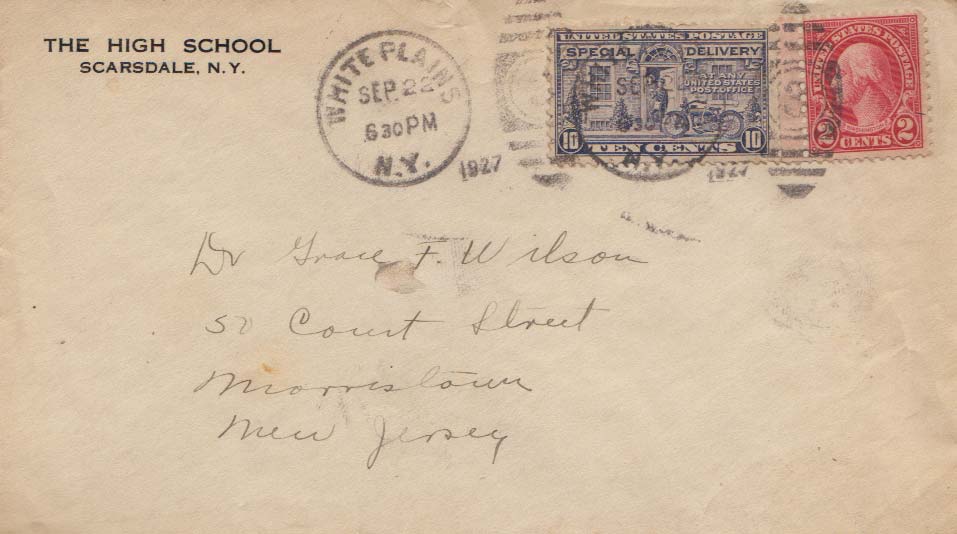 THE HIGH SCHOOL
SCARSDALE, N.Y.
WHITE PLAINS
SEP. 22
6 30 PM
N.Y.
1927
UNITED STATES POSTAGE
SPECIAL DELIVERY
AT ANY
UNITED STATES
POST OFFICE
10 TEN CENTS 10
SEP.
630
N.Y.
1927
UNITED STATES POSTAGE
WASHINGTON
2 CENTS 2
Dr Grace F. Wilson
50 Court Street
Morristown
New Jersey